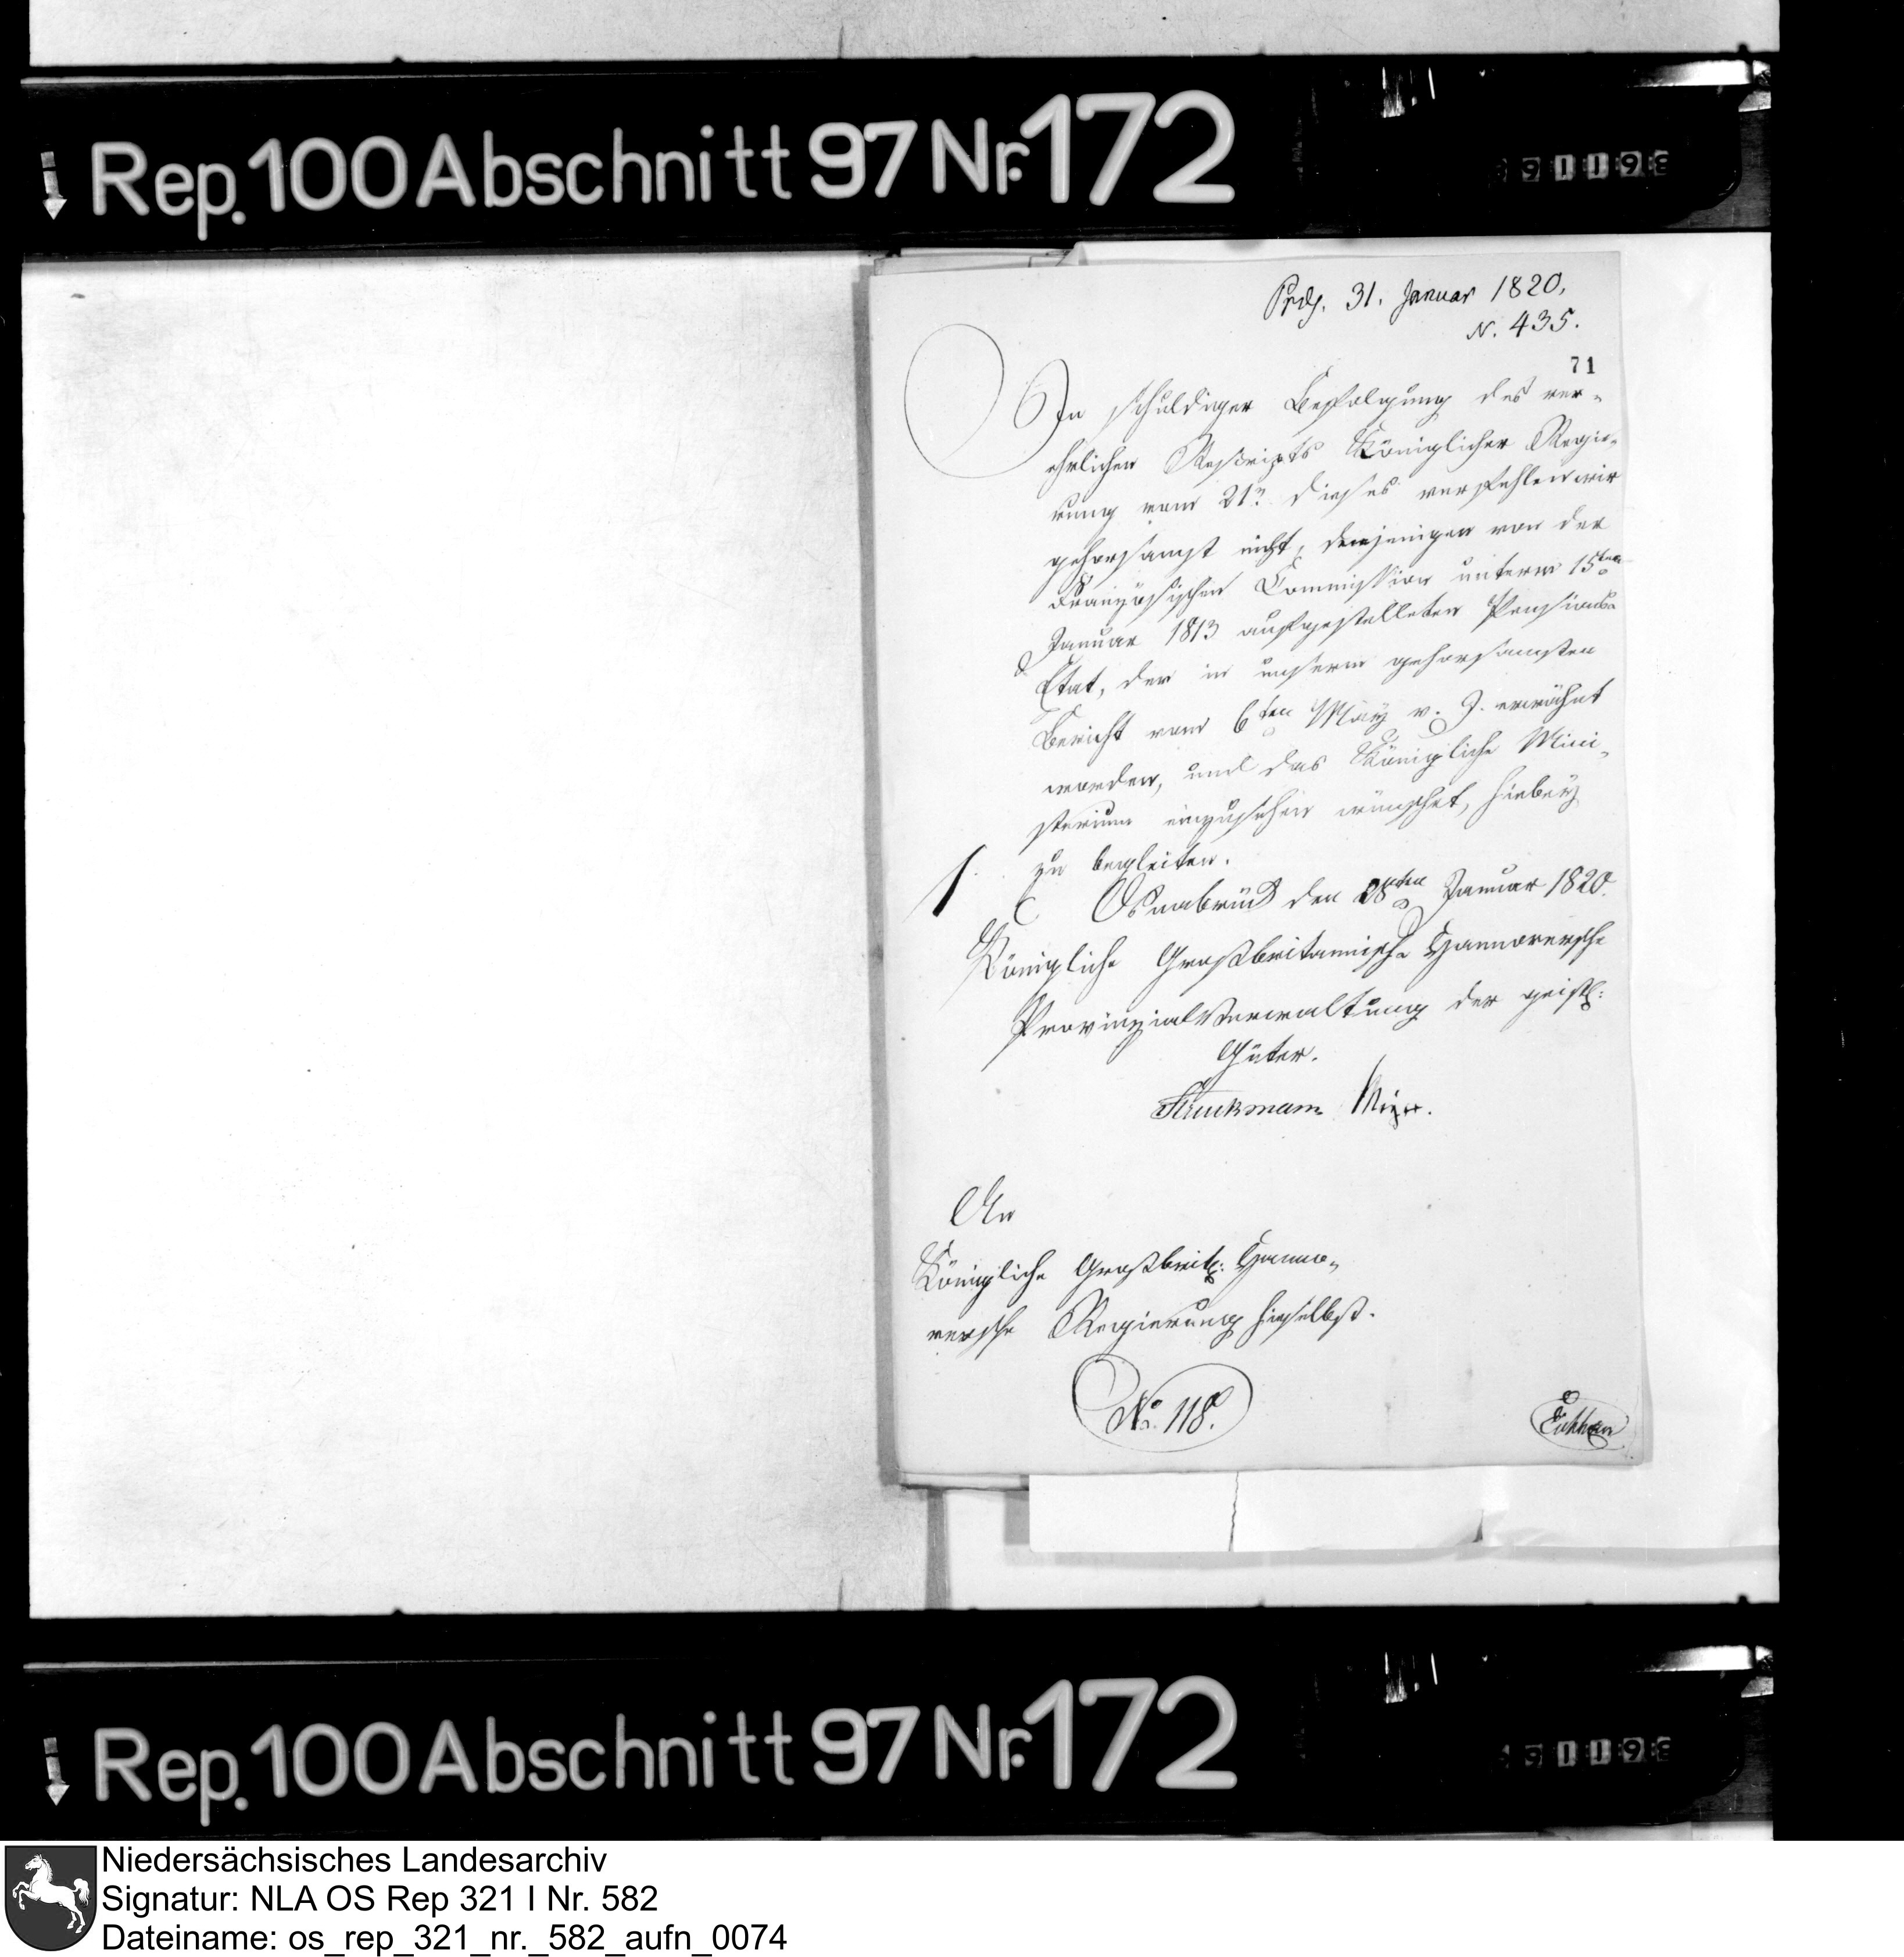 Rep. 100 Abschnitt 97 Nr. 172
31. Januar 1820.
N. 435.
71
In schuldiger Befolgung des ver-
ehrlichen Rescripts Königlicher Regie-
rung vom 21n dieses verfehlen wir
gehorsamst nicht, denjenigen von der
Französischen Commission unterm 15ten
Januar 1813 aufgestelleten Pensions
Etat, der in unserm gehorsamsten
Bericht vom 6ten May v. J. erwähnt
worden, und das Königliche Mini-
sterium einzusehen wünschet, hiebey
zu begleiten.
Osnabrück den 28sten Januar 1820.
Königliche Großbritannische Hannoversche
Provinzial Verwaltung der geistl:
Güter.
Struckmann
An
Königliche Großbrit: Hanno-
versche Regierung hieselbst.
No. 118.
Rep. 100 Abschnitt 97 Nr. 172
Niedersächsisches Landesarchiv
Signatur: NLA OS Rep 321 I Nr. 582
Dateiname: os_rep_321_nr._582_aufn_0074